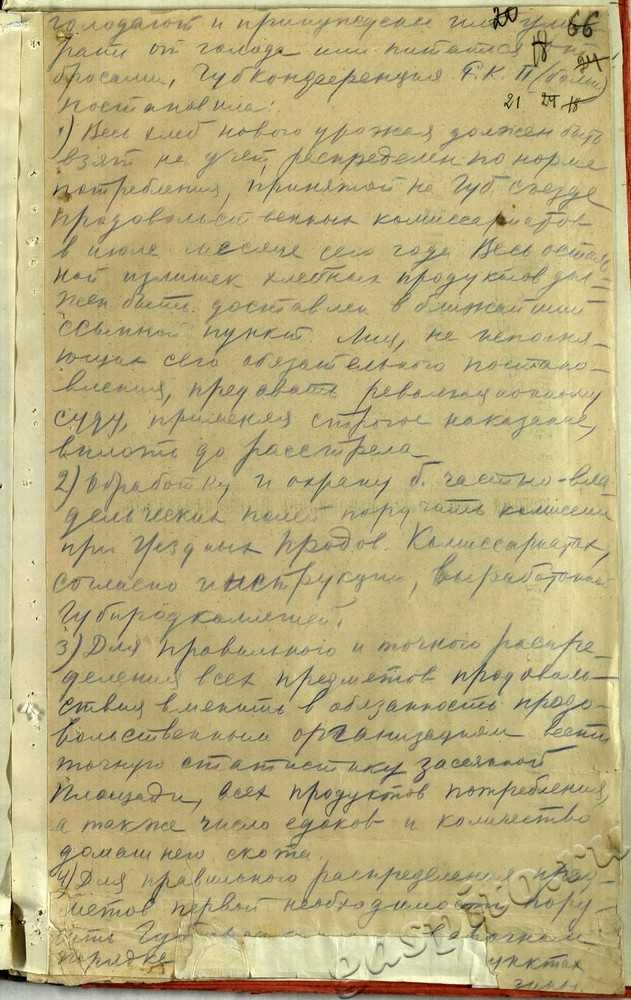 20 66
18 24
21 24 18
голодают и принуждены или уми-
рать от голода или питаться от-
бросами, Губконференция Р.К.П. (больш)
постановила:
1) Весь хлеб нового урожая должен быть
взят на учет, распределен по норме
потребления, принятой на Губ съезде
продовольственных комиссариатов
в июле месяце сего года Весь осталь-
ной излишек хлебных продуктов дол-
жен быть доставлен в ближайший
ссыпной пункт Лиц, не исполня-
ющих сего обязательного постано-
вления, предавать революционному
суду, применяя строгое наказание,
вплоть до расстрела
2) Обработку и охрану б. частно-вла-
дельческих полей поручить комиссии
при Уездных Продов. Комиссариатах,
согласно инструкции, выработанной
Губпродколлегией.
3) Для правильного и точного распре-
деления всех предметов продоволь-
ствия вменить в обязанность продо-
вольственным организациям вести
точную статистику засеянной
площади, всех продуктов потребления,
а также число едоков и количество
домашнего скота.
4) Для правильного распределения пред-
метов первой необходимости пору-
чить Губ
порядке унктах
easyto.ru